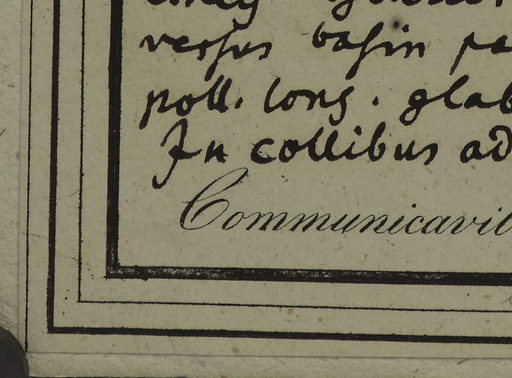 versus basin pa
poll. long. glab
In collibus ad
Communicavit